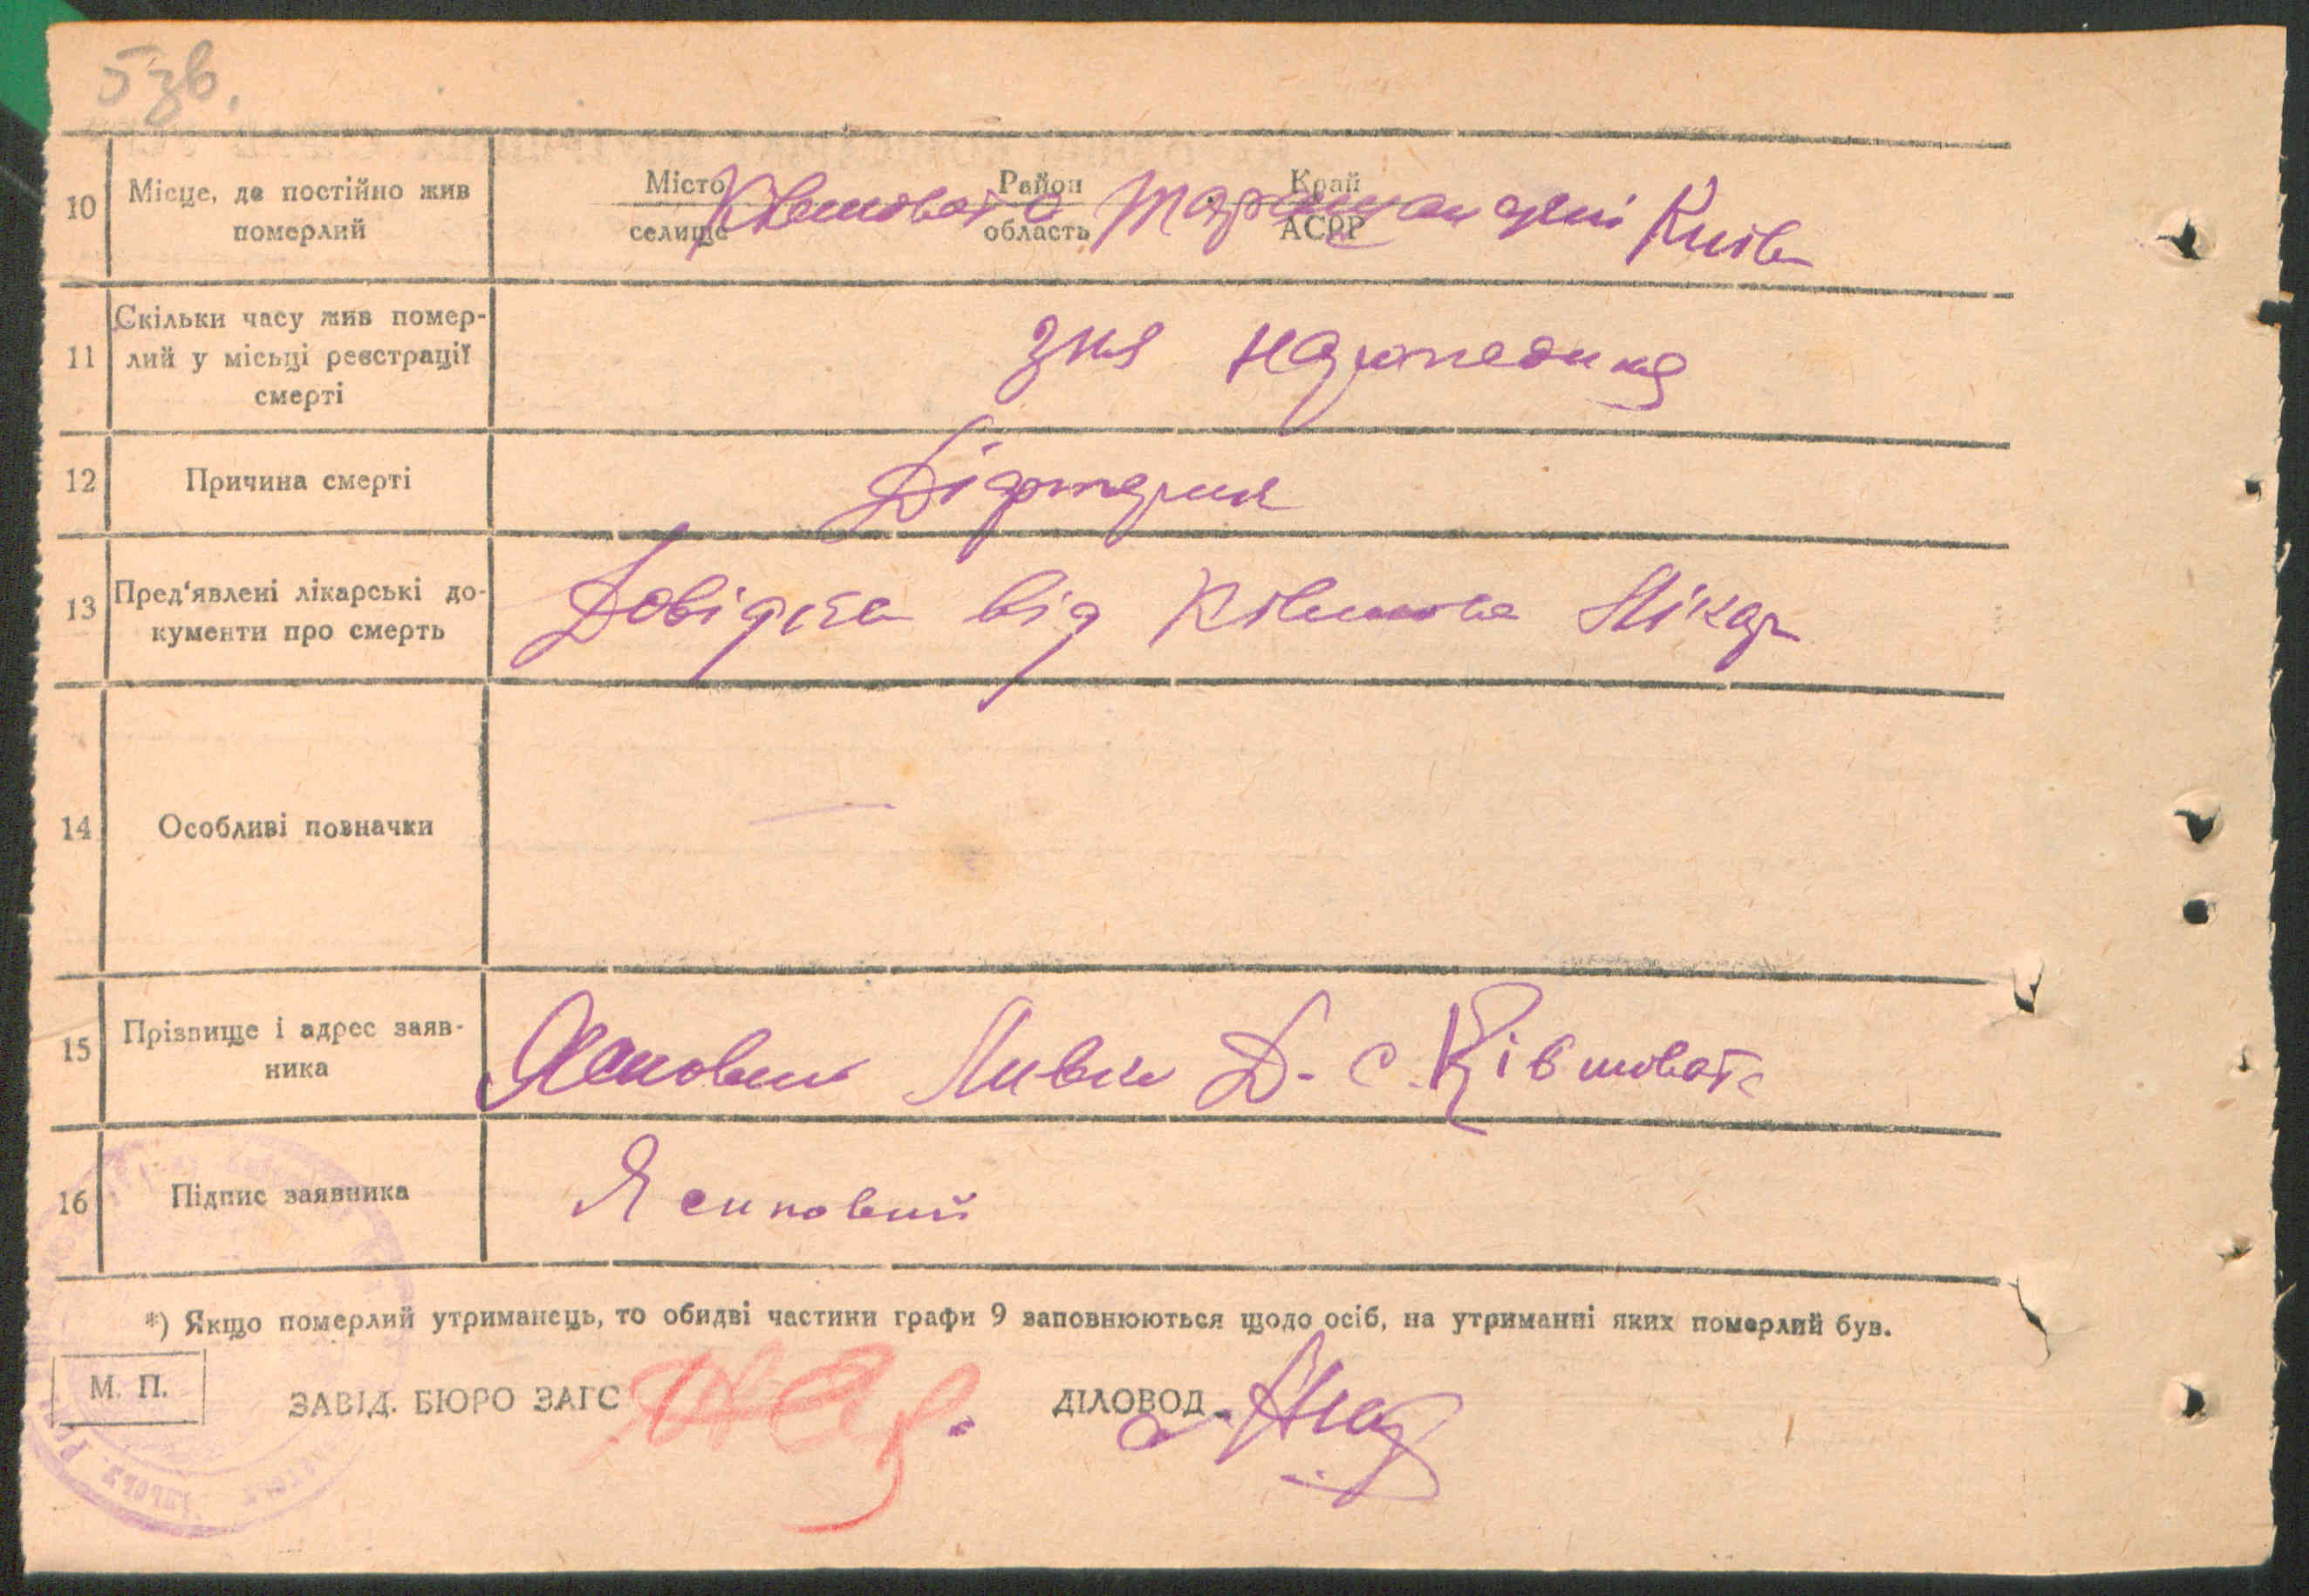 5 зв.
10 Місце, де постійно жив померлий
Місто селище Район область Край АСРР
Ківшовата Таращанській Київ
11 Скільки часу жив помер-
лий у місьці реєстрації
смерті
з ня народженя
12 Причина смерті
Діфтерия
13 Пред'явлені лікарські до-
кументи про смерть
Довідка від Ківшова Лікар
14 Особливі повначки
—
15 Прізвище і адрес заяв-
ника
Д. с. Ківшовата
16 Підпис заявника
*) Якщо померлий утриманець, то обидві частини графи 9 заповнюються щодо осіб, на утриманні яких померлий був.
М. П.
ЗАВІД. БЮРО ЗАГС
ДІЛОВОД